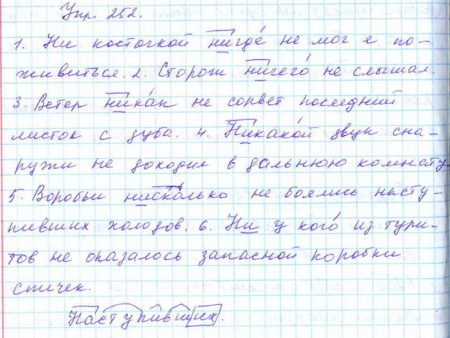 Упр. 252.
1. Ни косточкой нигде́ не мог я по-
живиться. 2. Сторож ничего́ не слышал.
3. Ветер ника́к не сорвет последний
листок с дуба. 4. Никако́й звук сна-
ружи не доходил в дальнюю комнату.
5. Воробьи ниско́лько не боялись насту-
пивших холодов. 6. Ни у кого́ из тури-
тов не оказалось запасной коробки
спичек.
Наступивших.